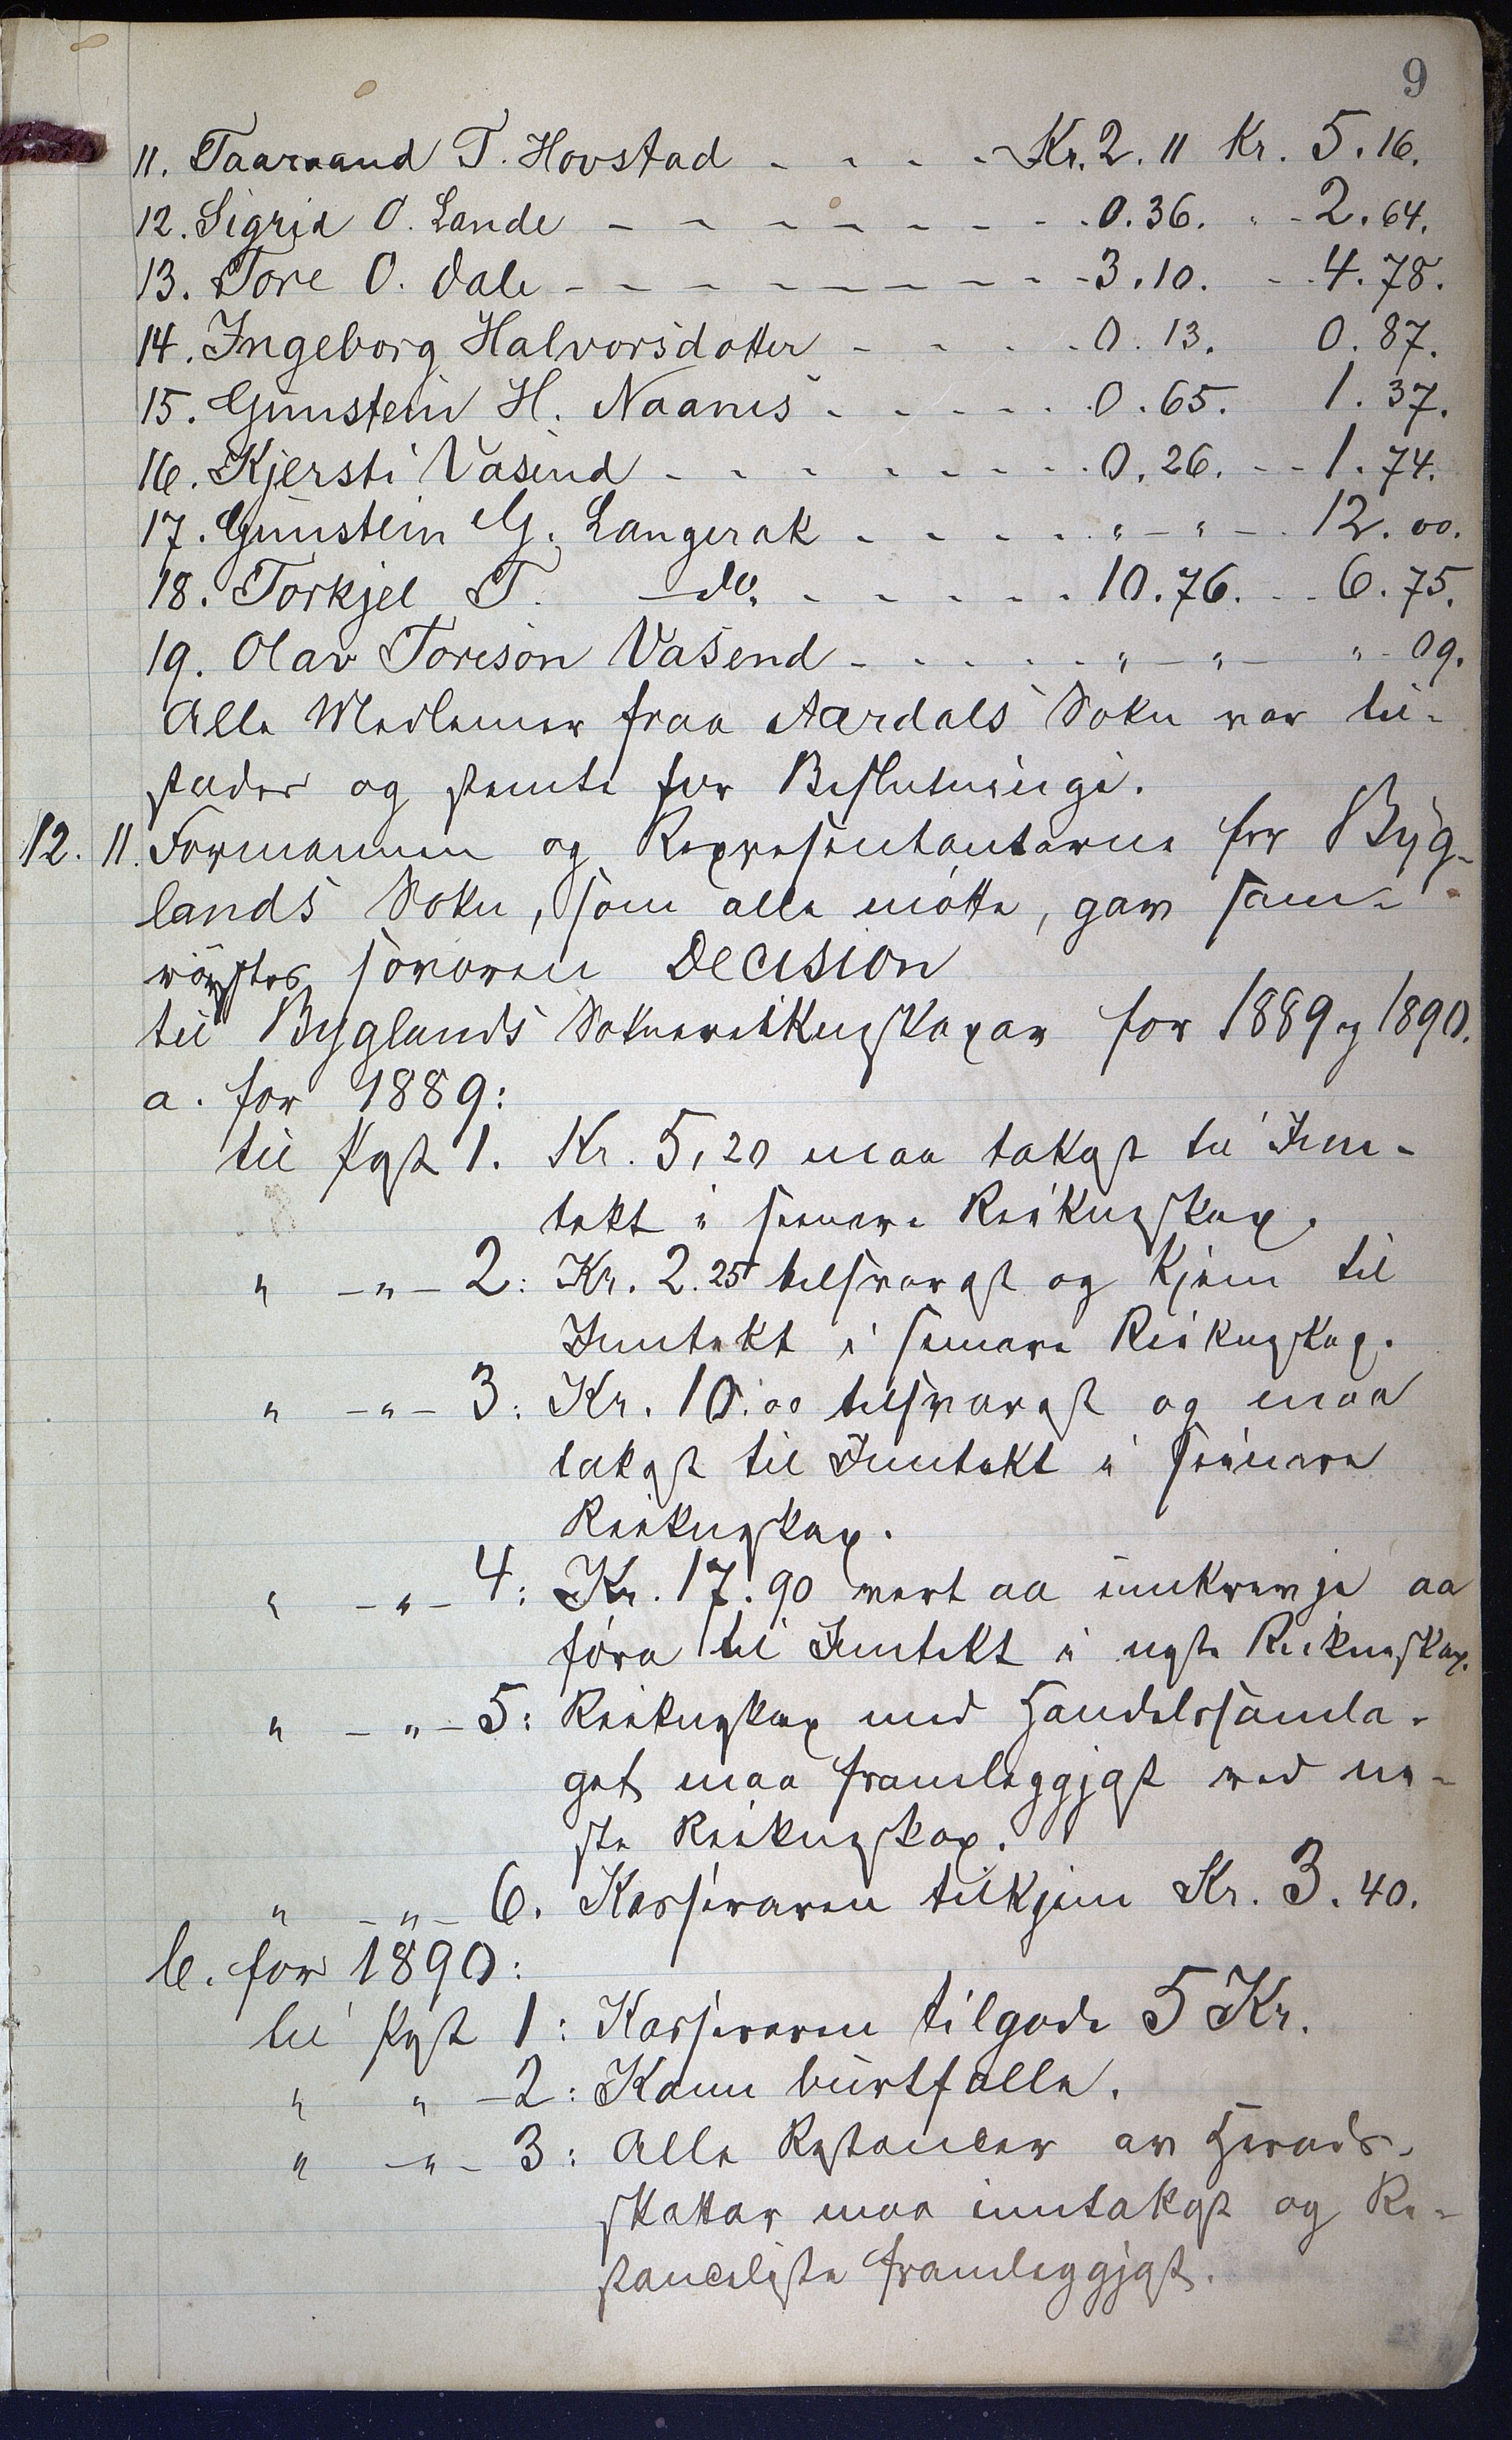 9
11. Taaraand T. Hovstad - - - - Kr. 2. 11 Kr. 5. 16.
12. Sigrid O. Lande - - - - - - - - 0. 36. " - 2. 64.
13. Tore O. Dale - - - - - - - - - 3. 10. - - 4. 78.
14. Ingeborg Halvorsdotter - - - - 0. 13. 0. 87.
15. Gunstein H. Naanes - - - - - 0. 65. 1. 37.
16. Kjersti Vasend - - - - - - - - 0. 26. - - 1. 74.
17. Gunstein G. Langerak - - - - - " - " - 12. 00.
18. Torkjel T. - do. - - - - - 10. 76. - - 6. 75.
19. Olav Toreson Vasend - - - - - " - " - " - 09.
Alle Medlemer fraa Aardals Sokn var til-
stades og stemte for Beslutningi.
12. 11. Formannen og Representantarne for Byg-
lands Sokn, som alle møtte, gav sam-
røystes sovoren Decision
til Byglands Soknereikneskapar for 1889 og 1890.
a. for 1889:
til Pgst 1. Kr. 5,20 maa takast til Inn-
tekt i seinare Reikneskap.
" - " - 2: Kr. 2.25 tilsvarast og kjem til
Inntekt i seinare Reikneskap.
" - " - 3: Kr. 10.00 tilsvarast og maa
takast til Inntekt i seinare
Reikneskap.
" - " - 4: Kr. 17.90 vert aa innkrevja aa
føra til Inntekt i neste Reikneskap.
" - " - 5: Reikneskap med Handelssamla-
get maa framleggjast ved ne-
ste Reikneskap.
" - " - 6. Kasseraren tilkjem Kr. 3. 40.
b. for 1890:
til Pgst 1: Kasseraren tilgode 5 Kr.
" " - 2: Kann burtfalle.
" - " - 3: Alle Restancer av Herads-
skattar maa inntakast og Re-
stanceliste framleggjast.